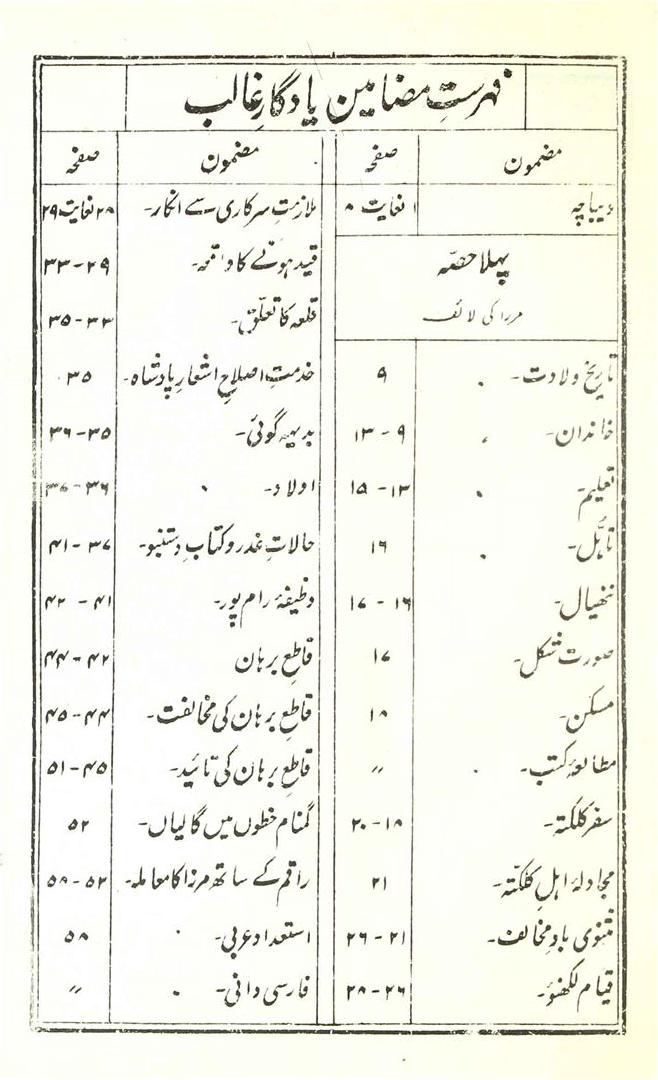 فہرستِ مضامین یادگارِ غالب
مضمون صفحہ
دیباچہ ۱ لغایت ۸
پہلا حصّہ
مرزا کی لائف
تاریخ ولادت۔ ۹
خاندان۔ ۹ - ۱۳
تعلیم۔ ۱۳ - ۱۵
تاہّل۔ ۱۶
ننھیال۔ ۱۶ - ۱۷
صورت شکل۔ ۱۷
مسکن۔ ۱۸
مطالعۂ کتب۔ 〃
سفر کلکتہ۔ ۱۸ - ۲۰
مجادلۂ اہلِ کلکتہ۔ ۲۱
مثنوی بادِ مخالف۔ ۲۱ - ۲۶
قیام لکھنؤ۔ ۲۶ - ۲۸
مضمون صفحہ
ملازمتِ سرکاری سے انکار۔ ۲۸ لغایت ۲۹
قید ہونے کا واقعہ۔ ۲۹ - ۳۳
قلعہ کا تعلّق۔ ۳۳ - ۳۵
خدمتِ اصلاحِ اشعارِ پادشاہ۔ ۳۵
بدیہہ گوئی۔ ۳۵ - ۳۶
اولاد۔ ۳۶ - ۳۷
حالاتِ غدر و کتابِ دستنبو۔ ۳۷ - ۴۱
وظیفۂ رام پور۔ ۴۱ - ۴۲
قاطعِ برہان ۴۲ - ۴۴
قاطعِ برہان کی مخالفت۔ ۴۴ - ۴۵
قاطعِ برہان کی تائید۔ ۴۵ - ۵۱
گمنام خطوں میں گالیاں۔ ۵۲
راقم کے ساتھ مرزا کا معاملہ۔ ۵۲ - ۵۸
استعداد عربی۔ ۵۸
فارسی دانی۔ 〃